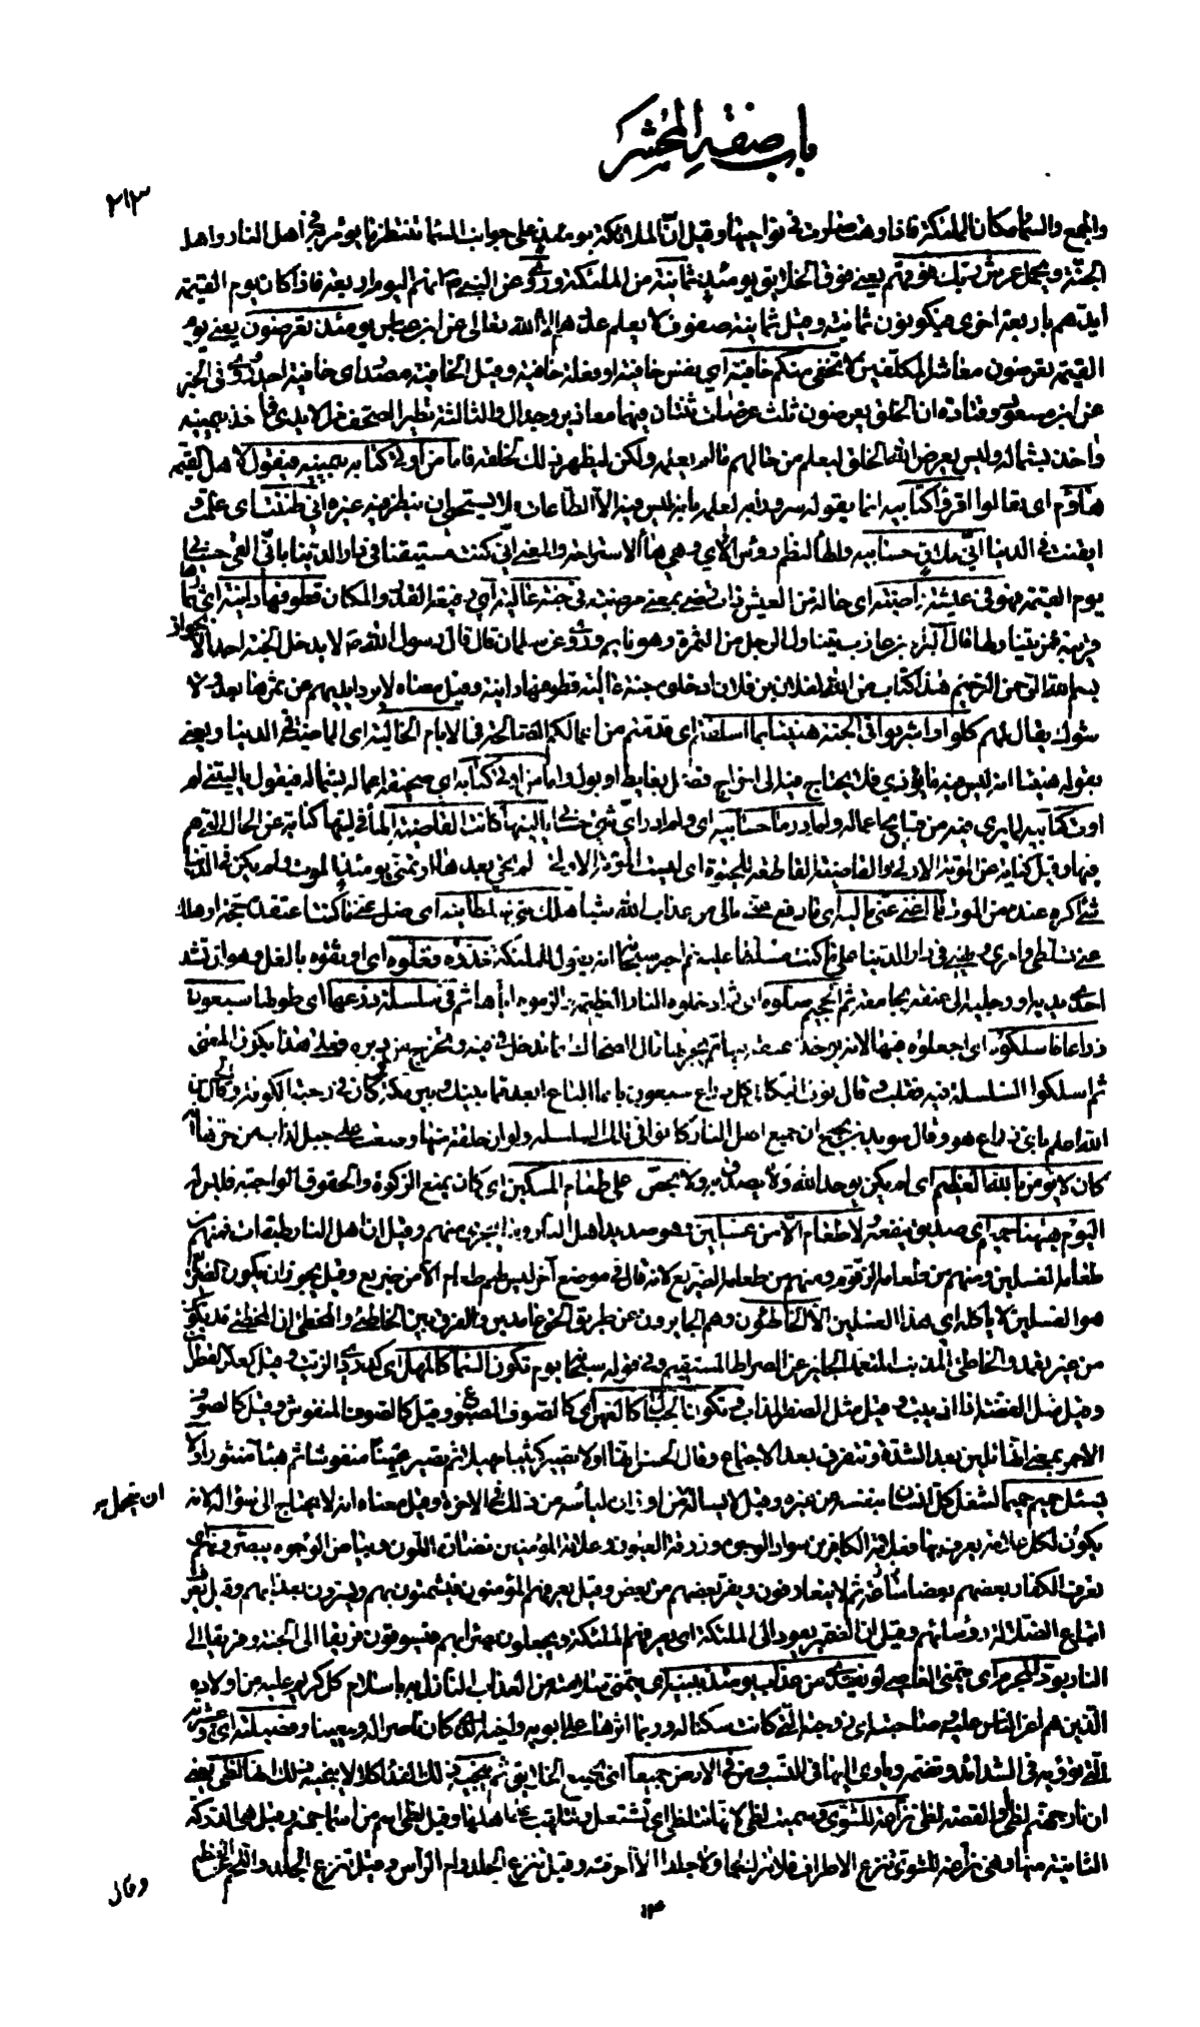 باب صفة المحشر
٢١٣
والجمع والسماء مكان الملئكة فاذا وهت صارت في نواحيها وقيل ان الملائكة يومئذ على جوانب السماء تنتظر ما يؤمر في اهل النار واهل
الجنة ويحمل عرش ربك فوقهم يعني فوق الخلائق يومئذ ثمانية من الملئكة وروي عن النبي انهم اليوم اربعة فاذا كان يوم القيمة
ايدهم باربعة اخرى فيكونون ثمانية وقيل ثمانية صفوف لا يعلم عددهم الا الله تعالى عن ابن عباس يومئذ تعرضون يعني يوم
القيمة تعرضون معاشر المكلفين لا تخفى منكم خافية اي نفس خافية او فعلة خافية وقيل الخافية مصدر اي خافية احد وروي في الخبر
عن ابن مسعود وقتادة ان الخلق يعرضون ثلث عرضات ثنتان فيهما معاذير وجدال والثالثة تطير الصحف في الايدي فاخذ بيمينه
واخذ بشماله وليس يعرض الله الخلق ليعلم من حالهم ما لم يعلمه ولكن ليظهر ذلك لخلقه فاما من اوتي كتابه بيمينه فيقول لاهل القيمة
هاؤم اي تعالوا اقرؤا كتابيه انما يقوله سرورا به لعلمه بانه ليس فيه الا الطاعات فلا يستحيي ان ينظر فيه غيره اني ظننت اي علمت و
ايقنت في الدنيا اني ملاق حسابيه والهاء لنظم رؤس الآي وهي هاء الاستراحة والمعنى اني كنت مستيقنا في دار الدنيا باني القى حسابي
يوم القيمة فهو في عيشة راضية اي حالة من العيش ذات رضى بمعنى مرضية في جنة عالية اي رفيعة القدر والمكان قطوفها دانية اي ثمارها
قريبة ممن يتناولها قال البراء بن عازب يتناول الرجل من الثمرة وهو نايم وروي عن سلمان قال قال رسول الله ص لا يدخل الجنة احد الا بجواز
بسم الله الرحمن الرحيم هذا كتاب من الله لفلان بن فلان ادخلوه جنة عالية قطوفها دانية وقيل معناه لا يرد ايديهم عن ثمرها بعد ولا
شوك يقال لهم كلوا واشربوا في الجنة هنيئا بما اسلفتم اي قدمتم من اعمالكم الصالحة في الايام الخالية اي الماضية في الدنيا ويعني
بقوله هنيئا انه ليس فيه ما يؤذي فلا يحتاج فيه الى اخراج فضل بغايط او بول واما من اوتي كتابه اي صحيفة اعماله بشماله فيقول يا ليتني لم
اوت كتابيه لما يرى فيه من قبايح اعماله ولم ادر ما حسابيه اي ولم ادر اي شيء حسابي يا ليتها كانت القاضية الهاء في ليتها كناية عن الحال التي هم
فيها وقيل كناية عن الموتة الاولى والقاضية القاطعة للحيوة اي ليت الموتة الاولى لم نحي بعدها ان تمنى يومئذ الموت ولم يكن في الدنيا
شيء اكره عنده من الموت ما اغنى عني ماليه اي ما دفع عني مالي من عذاب الله شيئا هلك عني سلطانيه اي ضل عني ما كنت اعتقده حجة او هلك
عني تسلطي وامري ونهيي في دار الدنيا على ما كنت مسلطا عليه ثم اخبر سبحانه انه يقول للملئكة خذوه فغلوه اي اوثقوه بالغل وهو ان تشد
احدى يديه او رجليه الى عنقه بجامعة ثم الجحيم صلوه اي ثم ادخلوه النار العظيمة والزموه اياها ثم في سلسلة ذرعها اي طولها سبعون
ذراعا فاسلكوه اي اجعلوه فيها لانه يؤخذ عنقه فيها ثم يجر بها قال الضحاك انما تدخل في فيه وتخرج من دبره فعلى هذا يكون المعنى
ثم اسلكوا السلسلة فيه فقلب وقال نوف البكالي كل ذراع سبعون باعا الباع ابعد مما بينك وبين مكة وكان في رحبة الكوفة وقال الحسن
الله اعلم باي ذراع هو وقال سويد بن نجيح ان جميع اهل النار كانوا في تلك السلسلة ولو ان حلقة منها وضعت على جبل لذاب من حرها انه
كان لا يؤمن بالله العظيم اي لم يكن يوحد الله ولا يصدق به ولا يحض على طعام المسكين اي كان يمنع الزكوة والحقوق الواجبة فليس له
اليوم ههنا حميم اي صديق ينفعه ولا طعام الا من غسلين وهو صديد اهل النار وما يجري منهم وقيل ان اهل النار طبقات فمنهم من
طعامه الغسلين ومنهم من طعامه الزقوم ومنهم من طعامه الضريع لانه قال في موضع آخر ليس لهم طعام الا من ضريع وقيل يجوز ان يكون الضريع
هو الغسلين لا ياكله اي هذا الغسلين الا الخاطئون وهم الجايرون عن طريق الحق عامدين والفرق بين الخاطئ والمخطئ ان المخطئ قد يكون
من غير تعمد والخاطئ المذنب المتعمد الجاير عن الصراط المستقيم وفي قوله سبحانه يوم تكون السماء كالمهل اي كدردي الزيت وقيل كعكر القطران
وقيل مثل الفضة اذا اذيبت وقيل مثل الصفر المذاب وتكون الجبال كالعهن اي كالصوف المصبوغ وقيل كالصوف المنفوش وقيل كالصوف
الاحمر بمعنى انها تلين بعد الشدة وتتفرق بعد الاجتماع وقال الحسن انها اولا تصير كثيبا مهيلا ثم تصير عهنا منفوشا ثم هباء منثورا ولا
يسئل حميم حميما لشغل كل انسان بنفسه عن غيره وقيل لا يساله من اوزاره ان يتحمل لياسه من ذلك في الاخرة وقيل معناه انه لا يحتاج الى سؤاله لانه
ان يتحمل به
يكون لكل علامة يعرف بها فعلامة الكافرين سواد الوجوه وزرقة العيون وعلامة المؤمنين نضارة اللون وبياض الوجوه يبصرونهم اي
تعرف الكفار بعضهم بعضا ساعة ثم لا يتعارفون ويفر بعضهم من بعض وقيل يعرفهم المؤمنون فيشمتون بهم ويسرون بعذابهم وقيل يعرف
اتباع الضلالة رؤسائهم وقيل ان الضمير يعود الى الملئكة اي يعرفهم الملئكة ويجعلون بصراء بهم فيسوقون فريقا الى الجنة وفريقا الى
النار يود المجرم اي يتمنى العاصي لو يفتدي من عذاب يومئذ ببنيه اي يتمنى سلامته من العذاب النازل به باسلام كل كريم عليه من اولاده
الذين هم اعز الناس عليه وصاحبته اي زوجته التي كانت سكنا له وربما اثرها على ابويه واخيه الذي كان ناصرا له ومعينا وفصيلته اي وعشيرته
التي تؤويه في الشدائد وتضمه وياوي اليها في النسب ومن في الارض جميعا اي بجميع الخلائق ثم ينجيه ذلك الفداء كلا لا ينجيه ذلك انها لظى يعني
ان نار جهنم لظى او القصة لظى نزاعة للشوى وسميت لظى لانها تتلظى اي تشتعل وتتلهب على اهلها وقيل لظى اسم من اسماء جهنم وقيل هي الدركة
الثانية منها وهي نزاعة للشوى تنزع الاطراف فلا تترك لحما ولا جلدا الا احرقته وقيل تنزع الجلد وام الراس وقيل تنزع الجلد واللحم عن العظم
وقال